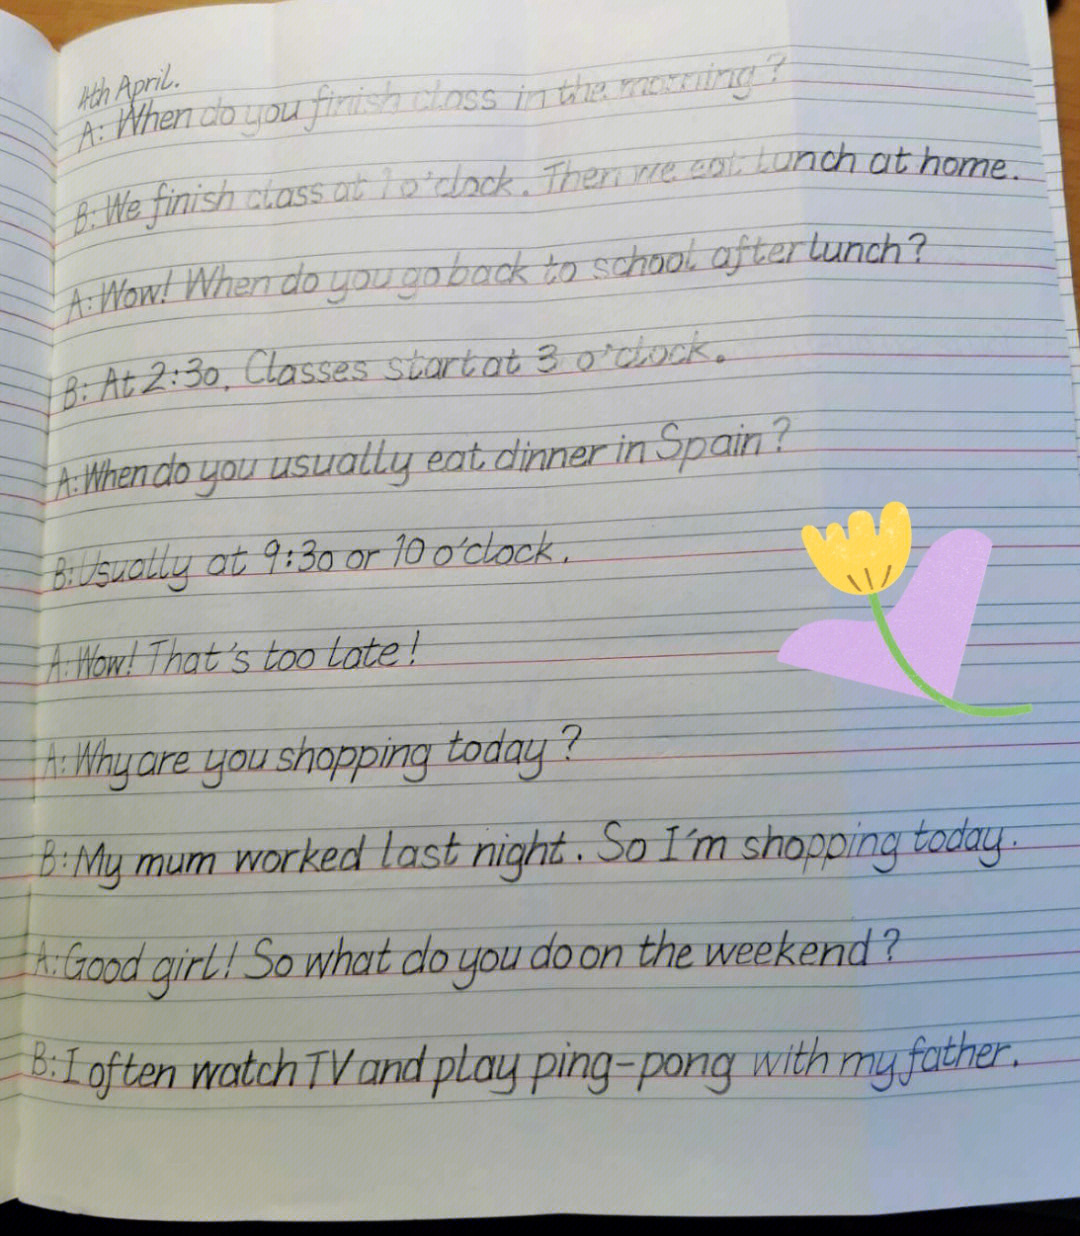 4th April.
A: When do you finish class in the morning?
B: We finish class at 1 o'clock. Then we eat lunch at home.
A: Wow! When do you go back to school after lunch?
B: At 2:30. Classes start at 3 o'clock.
A: When do you usually eat dinner in Spain?
B: Usually at 9:30 or 10 o'clock.
A: Wow! That's too late!
A: Why are you shopping today?
B: My mum worked last night. So I'm shopping today.
A: Good girl! So what do you do on the weekend?
B: I often watch TV and play ping-pong with my father.